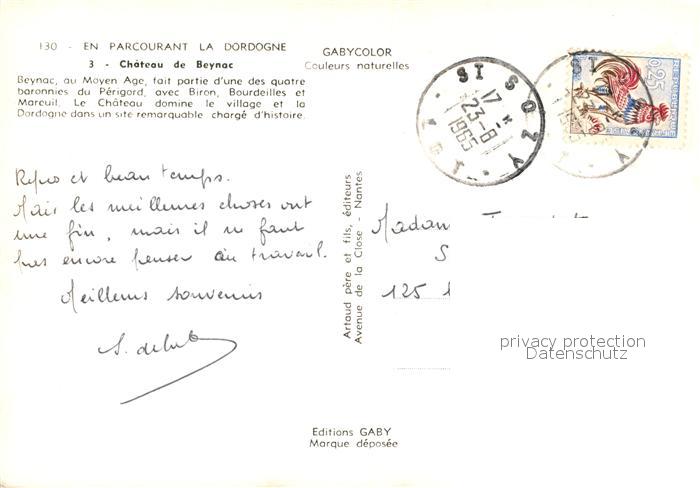 130 - EN PARCOURANT LA DORDOGNE
3 - Château de Beynac
Beynac, au Moyen Age, fait partie d'une des quatre
baronnies du Périgord, avec Biron, Bourdeilles et
Mareuil. Le Château domine le village et la
Dordogne dans un site remarquable chargé d'histoire.
GABYCOLOR
Couleurs naturelles
ST SOZY
17 H
23-8
1965
LOT
0,25
Repos et beau temps.
Mais les meilleures choses ont
une fin, mais il ne faut
pas encore penser au travail.
Meilleurs souvenirs
Artaud père et fils, éditeurs
Avenue de la Close - Nantes
Madam
S
125
privacy protection
Datenschutz
Editions GABY
Marque déposée